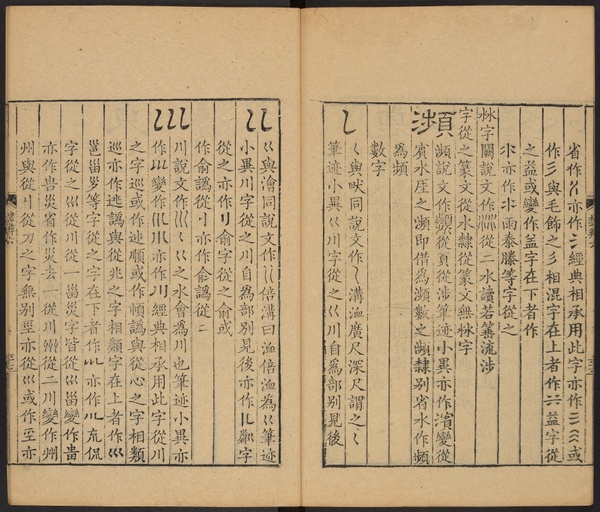 省作⺀亦作二經典相承用此字亦作二二巛或
作彡與毛飾之彡相混字在上者作六益字從
之益或變作益字在下者作
氺亦作小雨泰滕等字從之
沝字闕說文作沝從二水讀若箠流涉
字從之篆文從水隸從篆文無沝字
瀕
瀕說文作瀕從頁從涉筆迹小異亦作濱變從
賓水厓之瀕即借爲瀕數之瀕隸別省水作頻
爲頻
數字
〈
〈與畎同說文作〈溝洫廣尺深尺謂之〈
筆迹小異巜川字從之巜川自爲部別見後
巜
巜與澮同說文作巜倍溝曰洫倍洫爲巜筆迹
小異川字從之川自爲部別見後亦作 粼字
從之亦作刂俞字從之俞或
作俞譌從刂亦作俞譌從二
巛
川說文作巛〈巜之水會爲川也筆迹小異亦
作 變作 亦作川經典相承用此字從川
之字巡或作巡順或作順譌與從心之字相類
巡亦作迯譌與從兆之字相類字在上者作巛
邕甾 等字從之字在下者作 亦作儿巟侃
字從之巛從川從一甾災字皆從巛甾變作
亦作 災省作災 從一從川 從二川變作州
州與從刂從刀之字無別坙亦從巛或作至亦